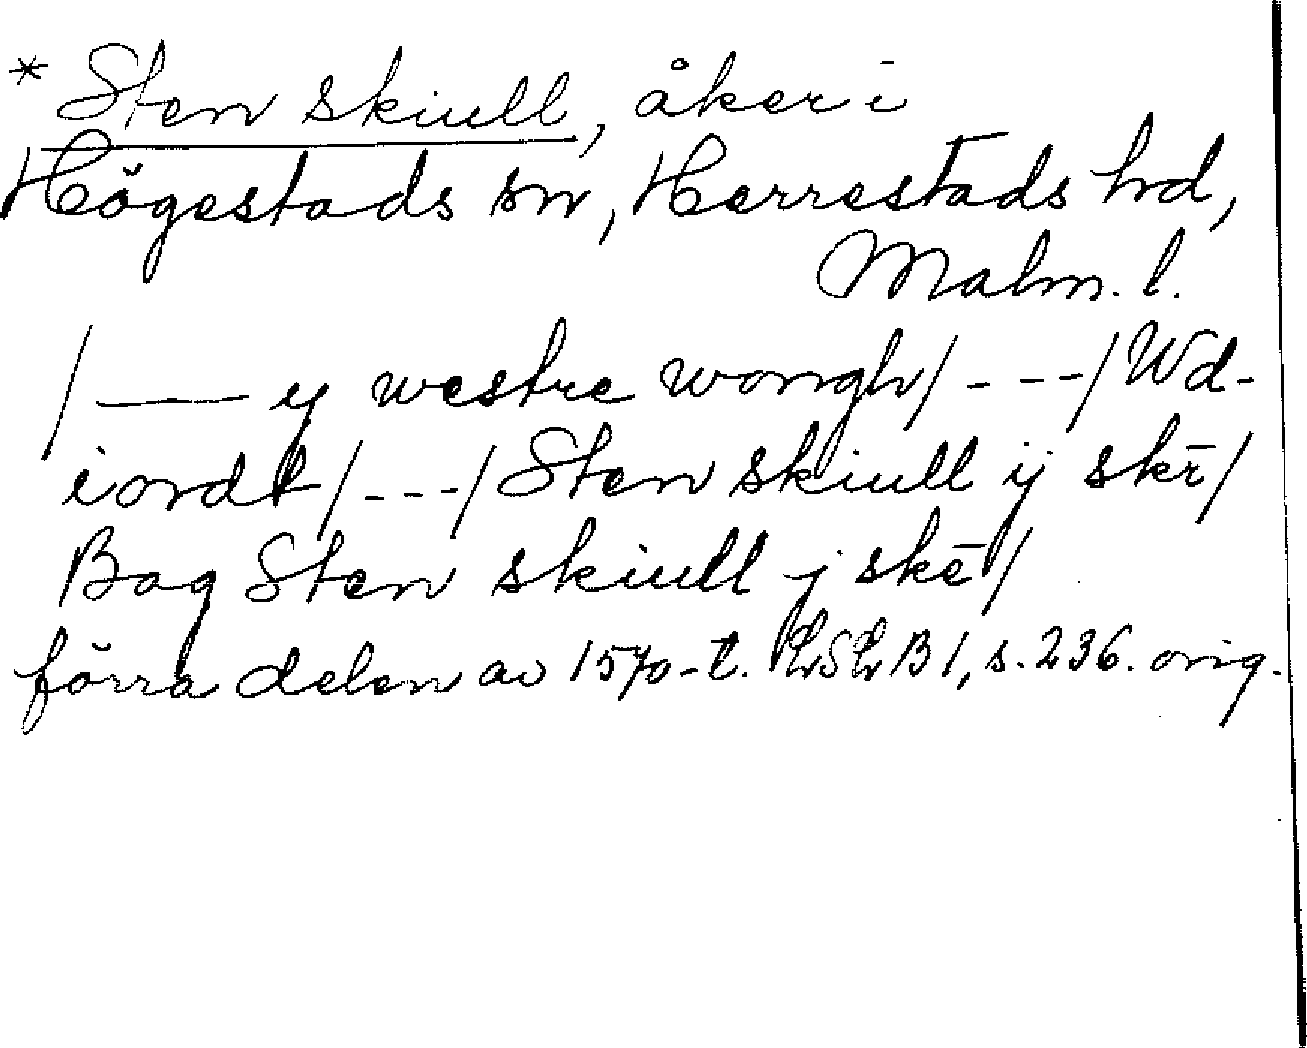 * Sten skiull, åker i
Högestads sn, Herrestads hd,
Malm. l.
/—— y westre wongh/---/Wd-
iordt/---/Sten skiull ij skē/
Bag Sten skiull j skē/
förra delen av 1570-t. LSLB 1, s. 236. orig.